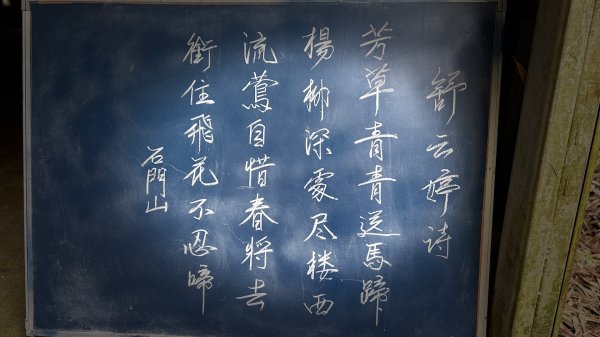 舒云婷诗
芳草青青送馬蹄
楊柳深處尽楼西
流鶯自惜春將去
銜住飛花不忍啼
石門山